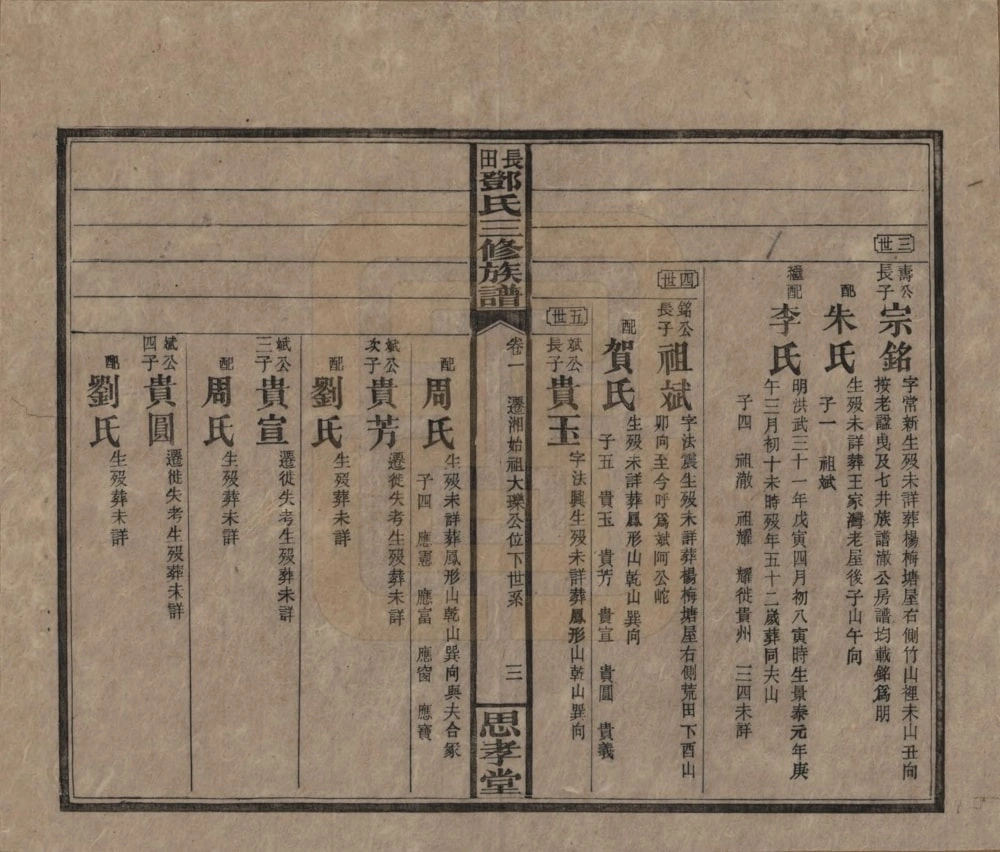 三世
壽公
長子
宗銘
字常新生歿未詳葬楊梅塘屋右側竹山裡未山丑向
按老諡曳及七井族譜澈公房譜均載銘爲明
配
朱氏
生歿未詳葬王家灣老屋後子山午向
子一 祖斌
繼配
李氏
明洪武三十一年戊寅四月初八寅時生景泰元年庚
午三月初十未時歿年五十二歲葬同夫山
子四 祖澈 祖耀 耀徙貴州 三四未詳
四世
銘公
長子
祖斌
字法震生歿未詳葬楊梅塘屋右側荒田下酉山
卯向至今呼爲斌阿公岮
配
賀氏
生歿未詳葬鳳形山乾山巽向
子五 貴玉 貴芳 貴宣 貴圓 貴義
五世
斌公
長子
貴玉
字法興生歿未詳葬鳳形山乾山巽向
長田
鄧氏三修族譜
卷一 遷湘始祖大瓅公位下世系 三
思孝堂
配
周氏
生歿未詳葬鳳形山乾山巽向與夫合冢
子四 應憲 應富 應窗 應寳
斌公
次子
貴芳
遷徙失考生歿葬未詳
配
劉氏
生歿葬未詳
斌公
三子
貴宣
遷徙失考生歿葬未詳
配
周氏
生歿葬未詳
斌公
四子
貴圓
遷徙失考生歿葬未詳
配
劉氏
生歿葬未詳